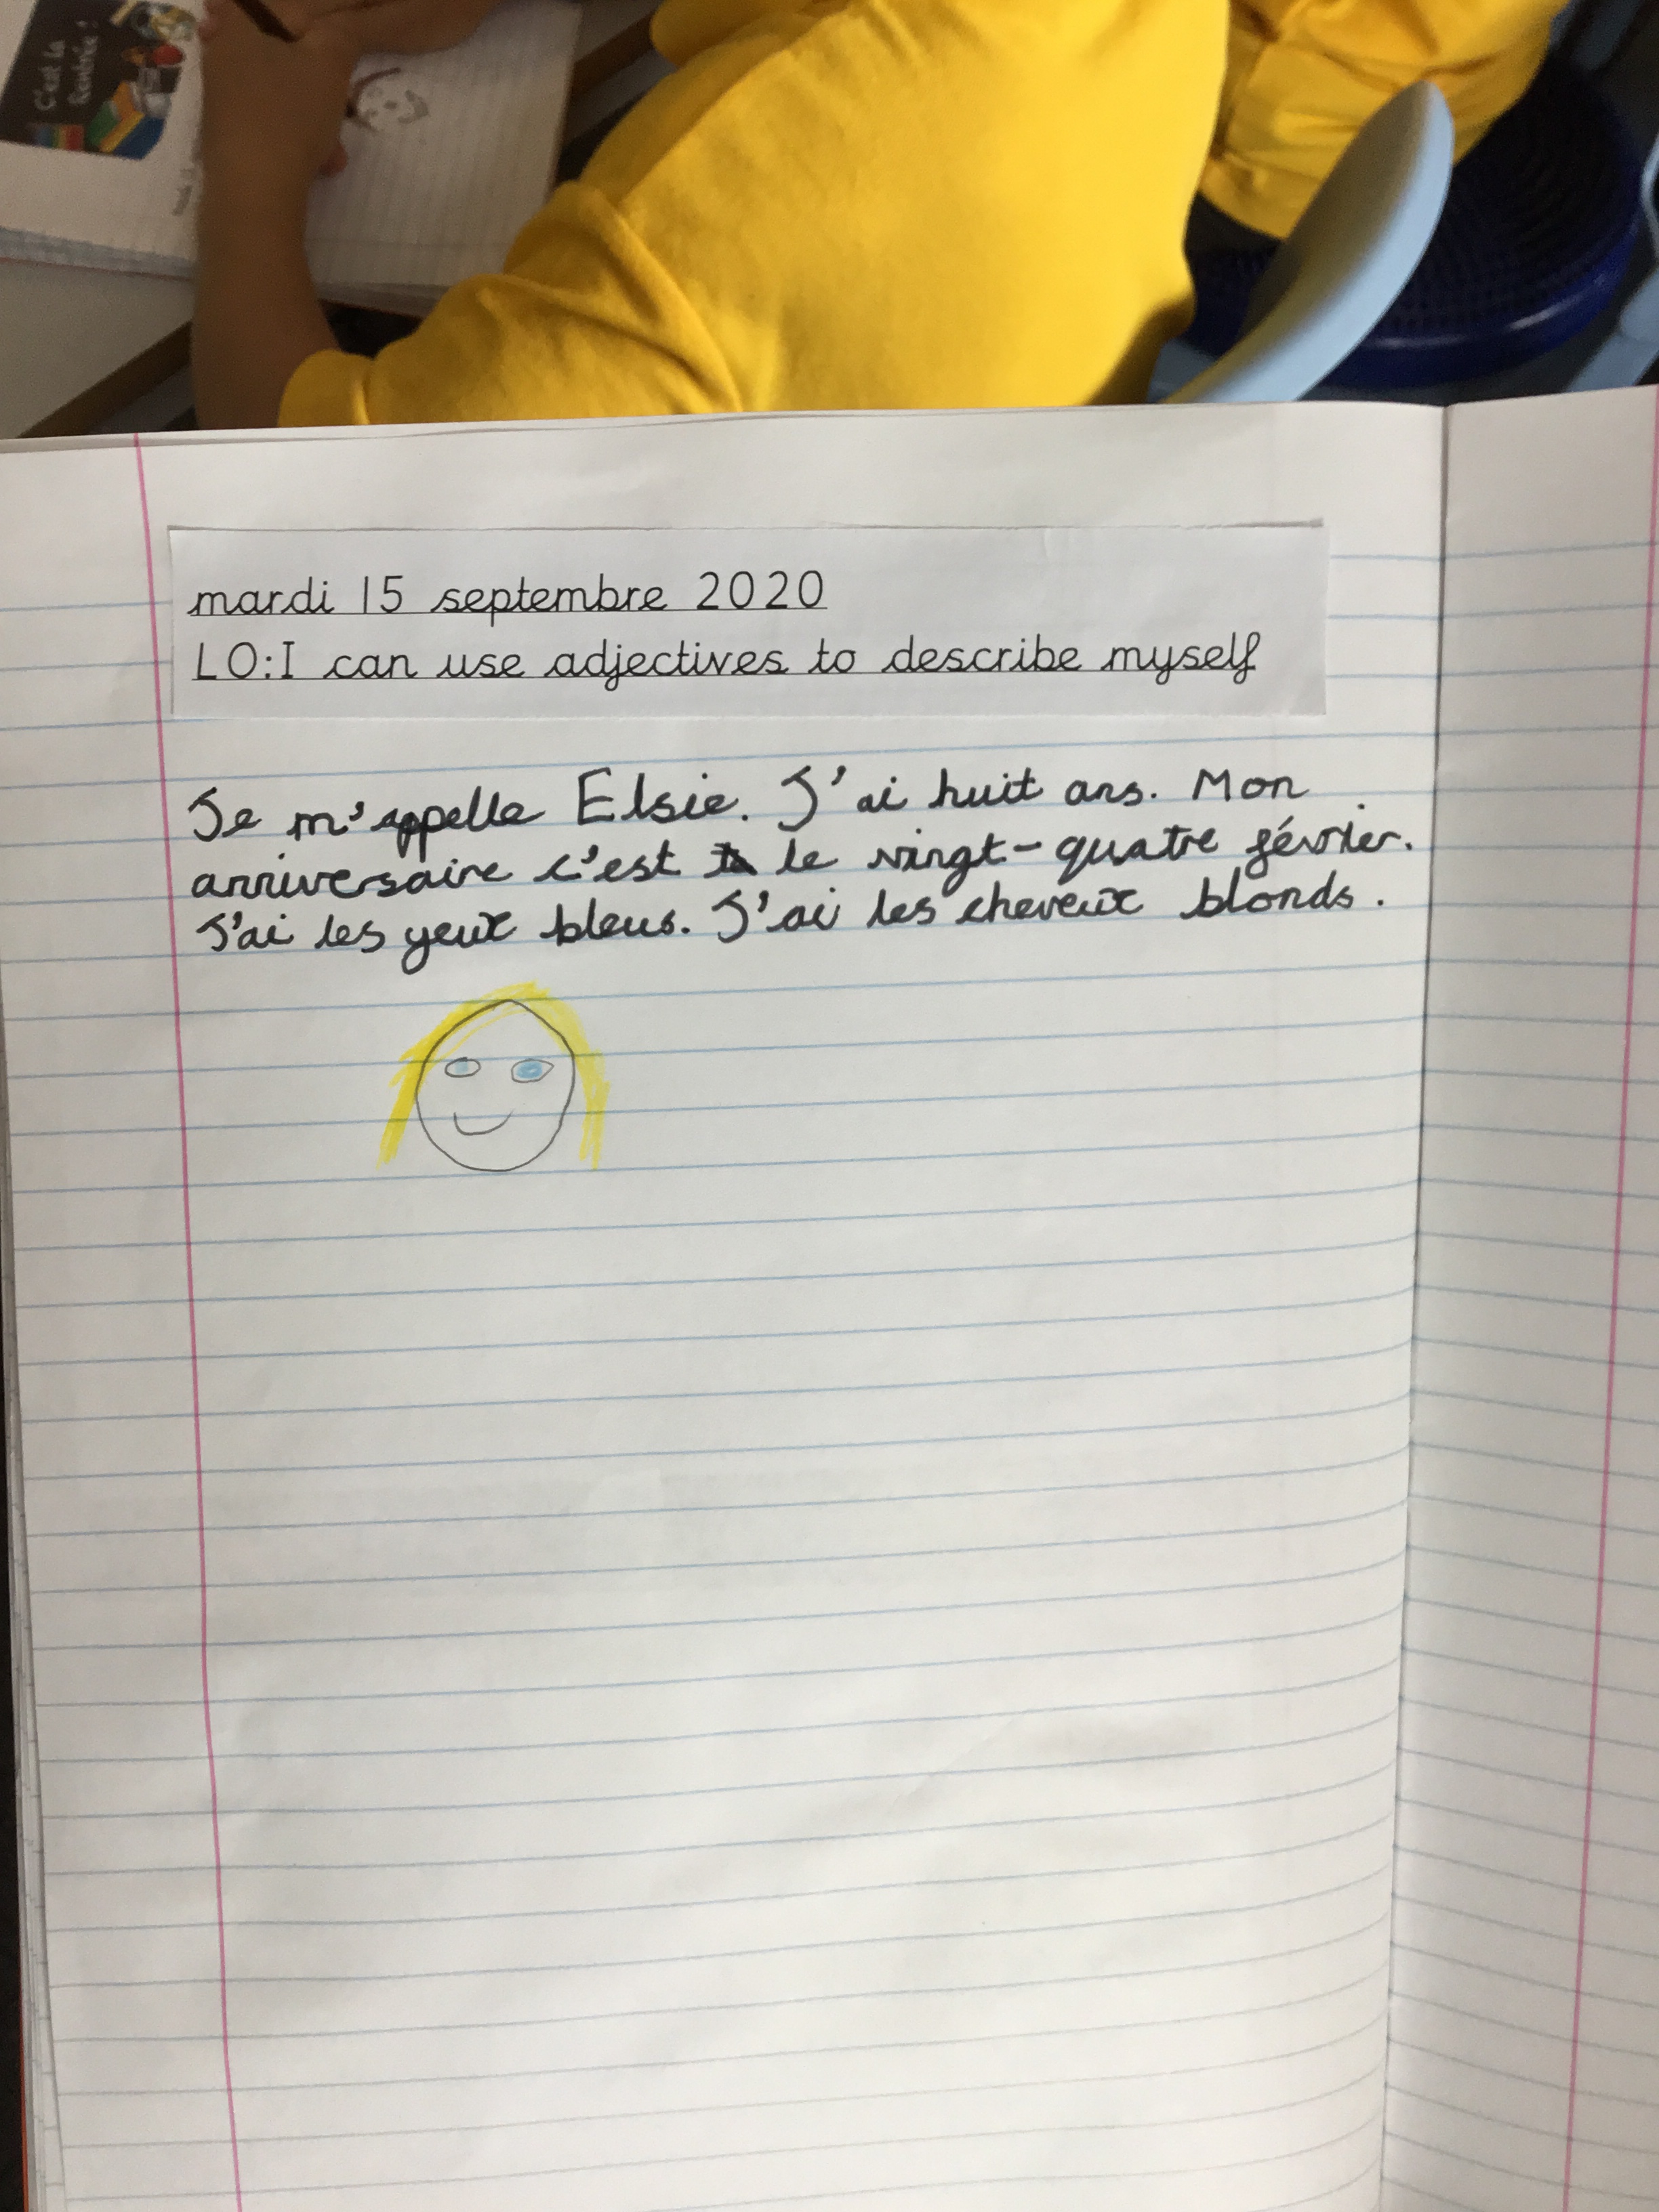 C'est la
Rentrée !
mardi 15 septembre 2020
LO:I can use adjectives to describe myself
Je m'appelle Elsie. J'ai huit ans. Mon
anniversaire c'est le vingt-quatre février.
J'ai les yeux bleus. J'ai les cheveux blonds.